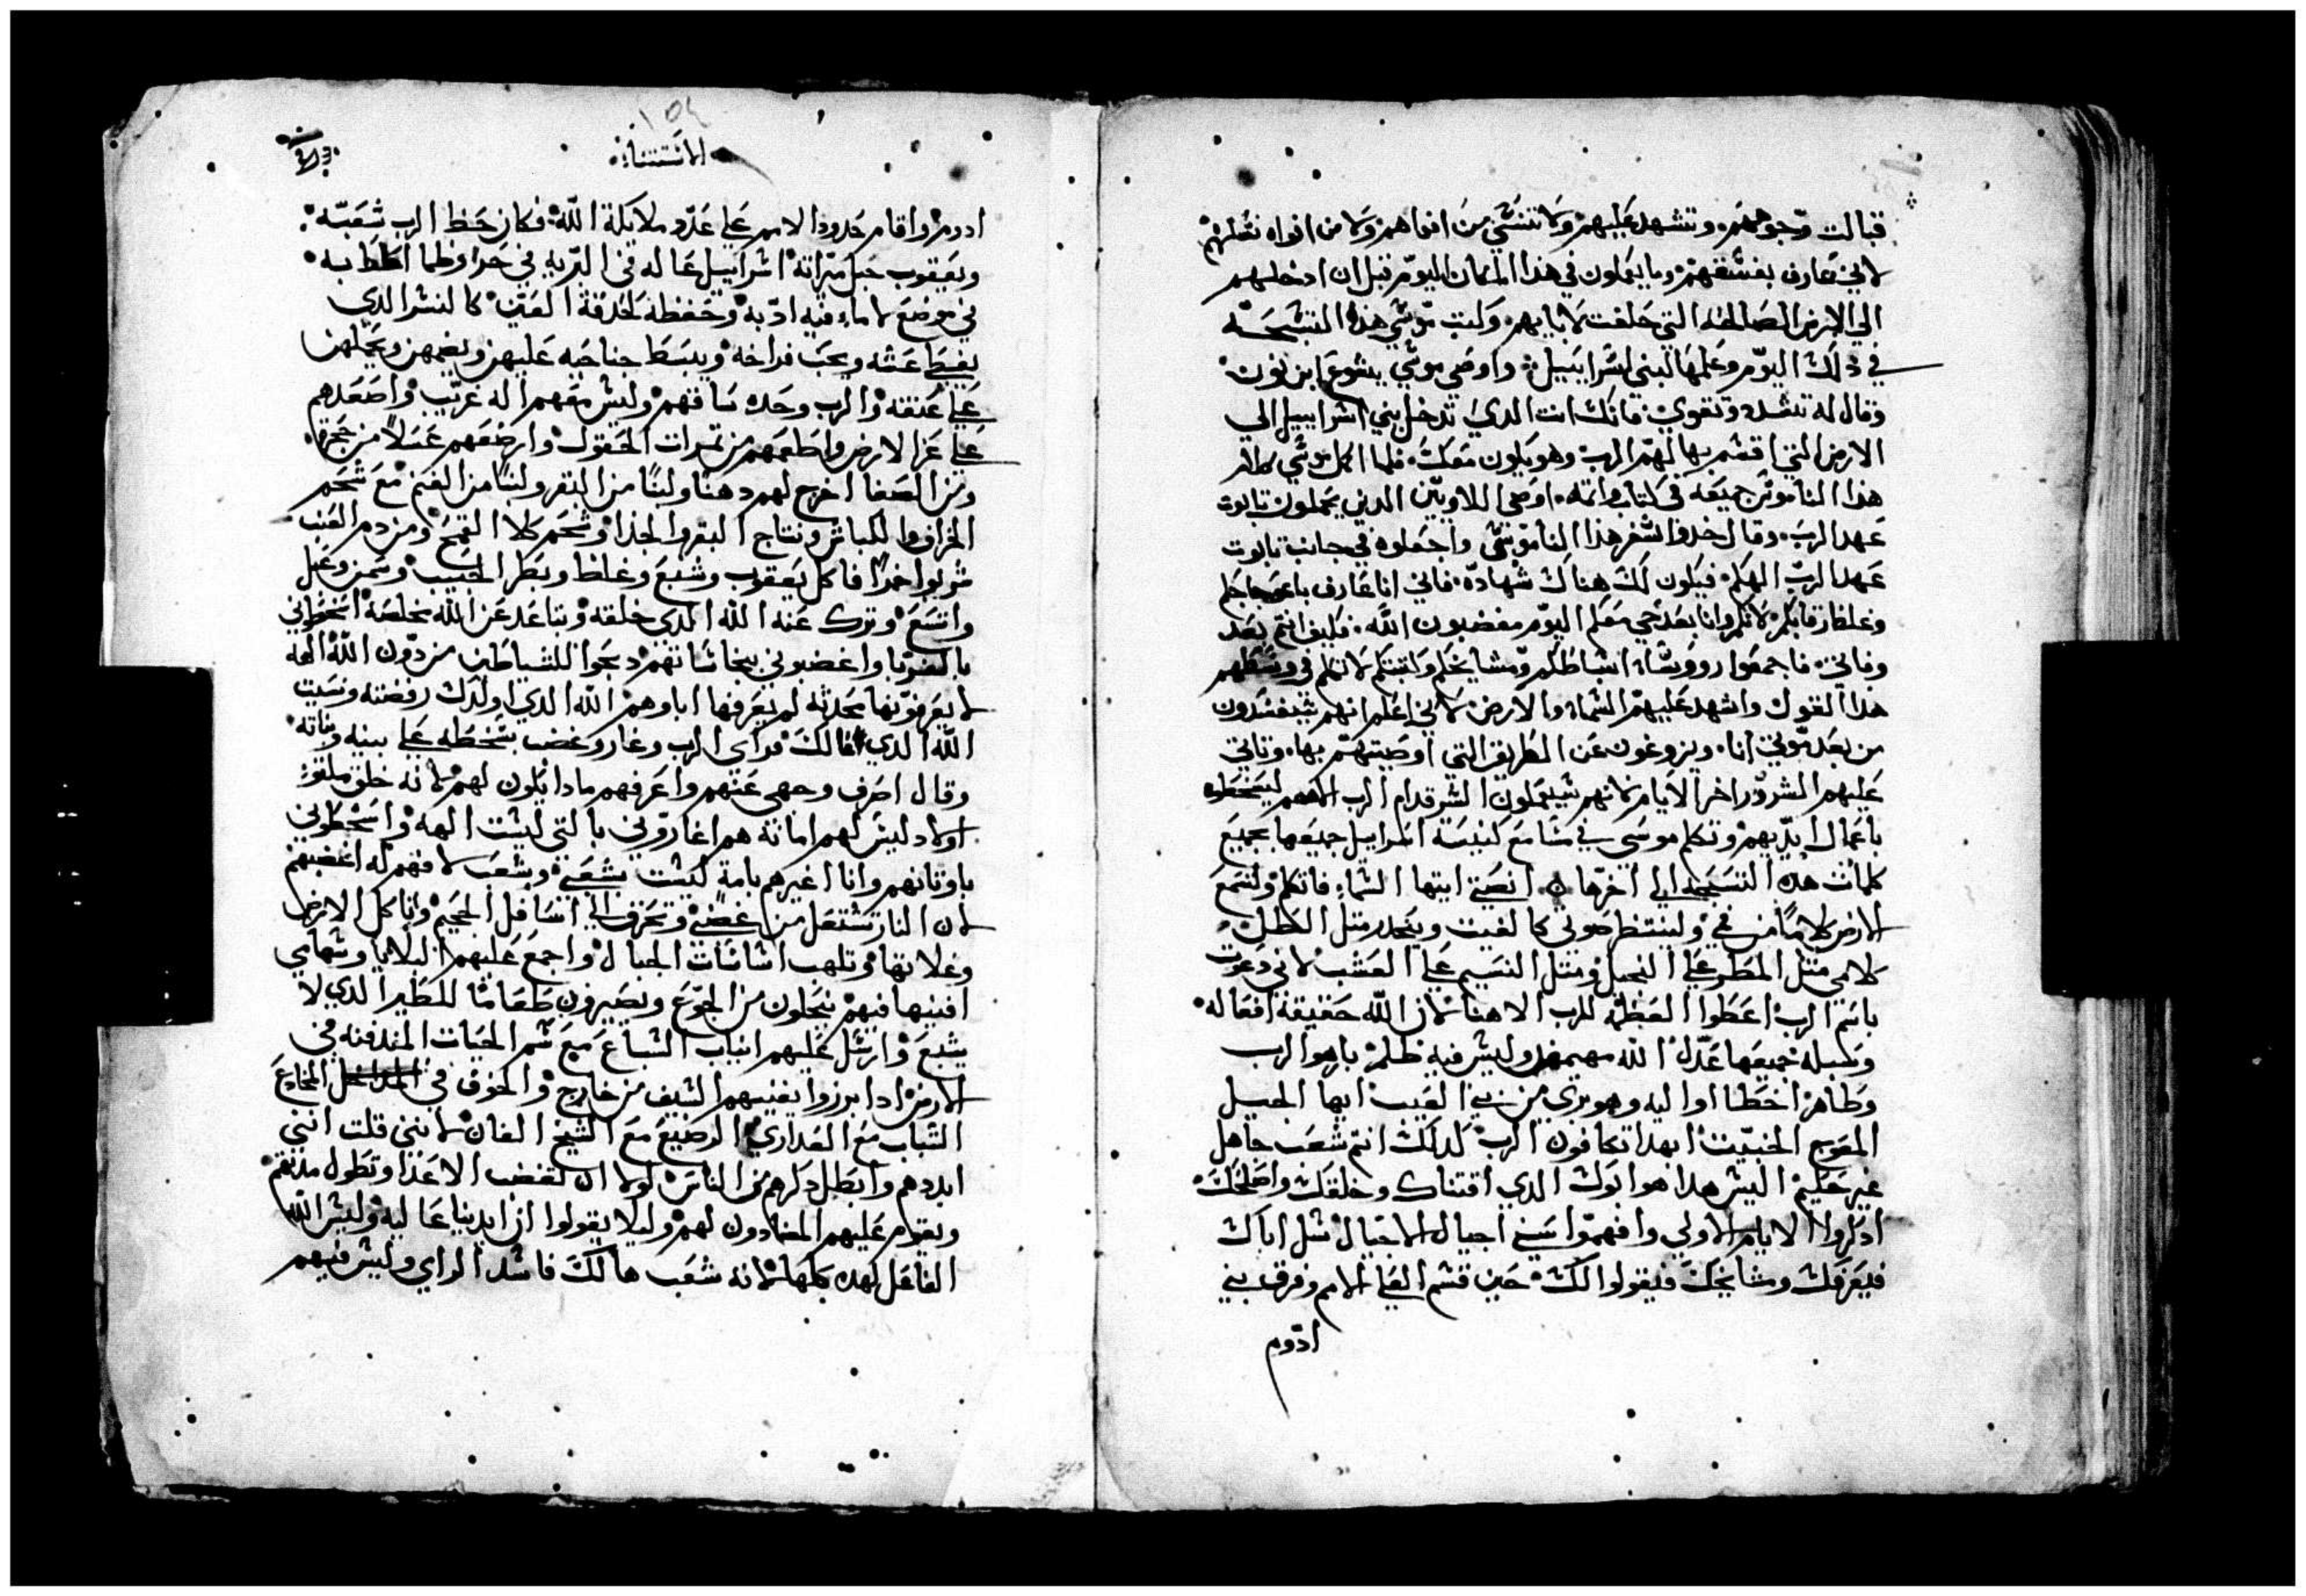 قبالت وجوههم وتشهد عليهم ولا تنسي من افواههم ولا من افواه نسلهم
لاني عارف بفسقهم وما يعملون في هذا المكان اليوم قبل ان ادخلهم
الي الارض الصالحه التي حلفت لابايهم وكتب موسي هذه التسبحه
في ذلك اليوم وعلمها لبني اسراييل واوصي موسي يشوع ابن نون
وقال له تشدد وتقوي فانك انت الدي تدخل بني اسراييل الي
الارض التي اقسم بها لهم الرب وهو يكون معك فلما اكمل موسي كلام
هذا الناموس جميعه في كتاب واتمه اوصي اللاويين الدين يحملون تابوت
عهد الرب وقال خدوا سفر هذا الناموس واجعلوه في جانب تابوت
عهد الرب الهكم فيكون لك هناك شهادة فاني انا عارف باعوجاجكم
وغلظ رقابكم لانكم وانا بعد حي معكم اليوم مغضبون الله فكيف انتم بعد
وفاتي فاجمعوا رووساء اسباطكم ومشايخكم وكتبتكم لاتكلم في وسطهم
هدا القول واشهد عليهم السماء والارض لاني اعلم انهم سيفسدون
من بعد موتي انا ويزوغون عن الطريق التي اوصيتهم بها وتاتي
عليهم الشرور اخر الايام لانهم سيعملون الشر قدام الرب الاههم ليسخطوه
باعمال ايديهم وتكلم موسي في مسامع كنيسة اسراييل جميعها بجميع
كلمات هده التسبحه الي اخرها انصتي ايتها السماء فاتكلم ولتسمع
الارض كلاما من في ولينتظر صوتي كالغيت وينحدر متل الطل
كلامي متل المطر علي النجيل ومتل النسيم علي العشب لاني دعوت
باسم الرب اعطوا العظمة للرب الاهنا لان الله حقيقة افعاله
وسبله جميعها عدل الله مهيمن وليس فيه ظلم بار هو الرب
وطاهر اخطااوا اليه وهو بري من بني العيب ايها الجيل
المعوج الخبيت ابهدا تكافون الرب كدلك انتم شعب جاهل
غير حكيم اليس هدا هو ابوك الدي اقتناك وخلقك واصلحك
ادكروا الايام الاولي وافهموا سني اجيال الاجيال سل اباك
فيعرفك ومشايخك فيقولوا لك حين قسم العلي الامم وفرق بني
ادوم
الاستثناء
ادوم واقام حدود الامم علي عدد ملايكة الله فكان حظ الرب شعبه
ويعقوب حبل ميراته اسراييل عاله في البريه في حر وظما احاط به
في موضع لا ماء فيه ادبه وحفظه كحدقة العين كالنسر الدي
يغطي عشه ويحب فراخه ويبسط جناحيه عليهن ويضمهن ويحملهن
علي عنقه والرب وحده ساقهم وليس معهم اله غريب واصعدهم
علي عز الارض واطعمهم من تمرات الحقول وارضعهم عسلا من حجر
ومن الصفا اخرج لهم دهنا ولبنا من البقر ولبنا من الغنم مع شحم
الخراف والكباش ونتاج البقر والجدا وشحم كلا القمح ومن دم العنب
شربوا خمرا فاكل يعقوب وشبع وغلظ وبطر الحبيب وسمن وعبل
واتسع وترك عنه الله الدي خلقه وتباعد عن الله مخلصه اسخطوني
بالغربا واغضبوني بنجاساتهم دبحوا للشياطين من دون الله الهة
لا يعرفونها محدتة لم يعرفها اباوهم الله الدي اولدك رفضته ونسيت
الله الدي عالك فراي الرب وغار وغضب بسخطه علي بنيه وبناته
وقال اصرف وجهي عنهم واعرفهم مادا يكون لهم لانه خلق ملتو
اولاد ليس لهم امانة هم اغاروني بالتي ليست الهة واسخطوني
باوتانهم وانا اغيرهم بامة ليست بشعبي وبشعب لا فهم له اغضبهم
لان النار تشتعل من غضبي وتحرق الي اسافل الجحيم وتاكل الارض
وغلاتها وتلهب اساسات الجبال واجمع عليهم البلايا وسهامي
افنيها فيهم ينحلون من الجوع ويصيرون طعاما للطير الدي لا
يشبع وارسل عليهم انياب السباع مع سم الحيات المندفنه في
الارض ادا برزوا يفنيهم السيف من خارج والخوف في المخادع
الشباب مع العداري الرضيع مع الشيخ الفان لانني قلت انني
ابددهم وابطل دكرهم من الناس لولا ان لغضب الاعدا وتطول مدتهم
ويقوم عليهم المضادون لهم وليلا يقولوا ان ايدينا عاليه وليس الله
الفاعل لهده كلها لانه شعب هالك فاسد الراي وليس فيهم